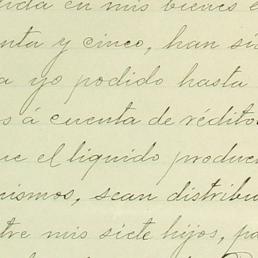 ida en mis bienes e
enta y cinco, han si
a yo podido hasta
s á cuenta de rédito
ue el líquido produc
cismos, sean distribu
tre mis siete hijos, pa